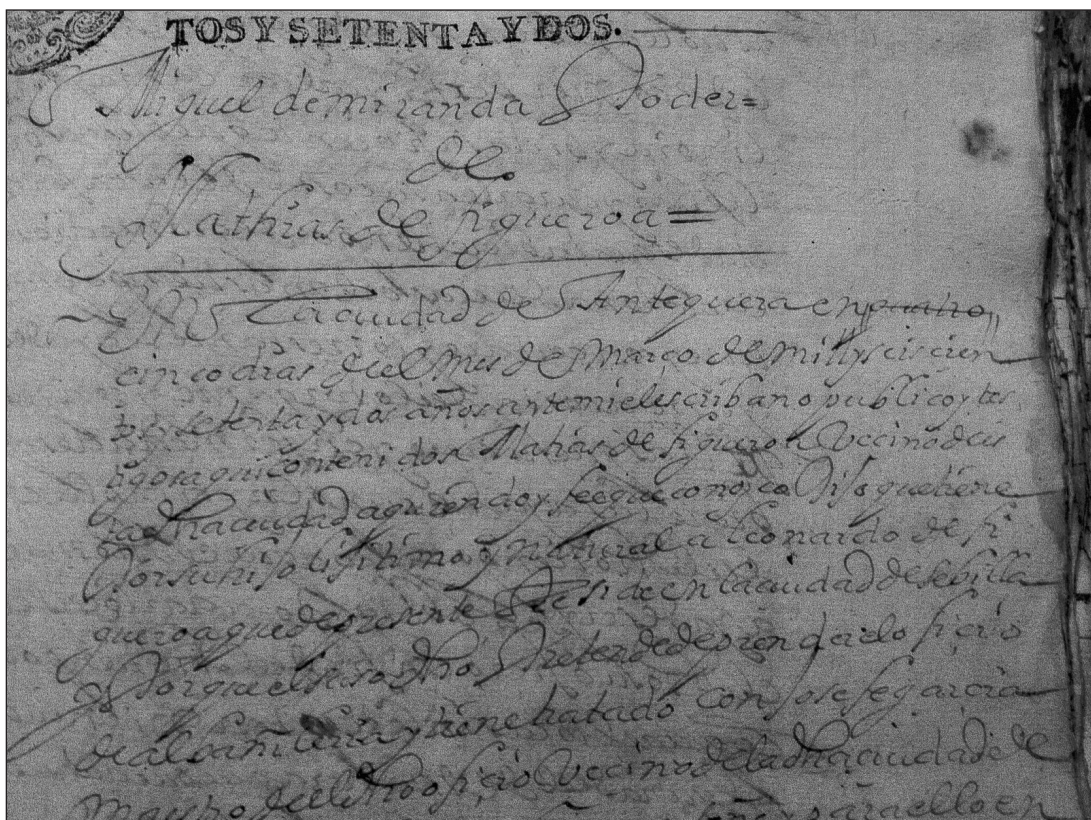 TOS Y SETENTA Y DOS.
Miguel de miranda Poder =
de
Mathias de figueroa =
En La ciudad de Antequera en quatro
cinco dias del mes de Março de mill y seiscien
tos y setenta y dos años ante mi el escribano publico y tes
tigos aqui contenidos Matias de figueroa Vecino de es
ta dha ciudad a quien doy fee que conozco Dijo que tiene
Por su hijo lijitimo y natural a leonardo de fi
gueroa que de presente Reside en la ciudad de sebilla
y Porque el suso dho Pretende deprender el oficio
de albañileria y tiene tratado con Josefe garcia
maestro del dho oficio Vecino de la dha ciudad de
para ello en